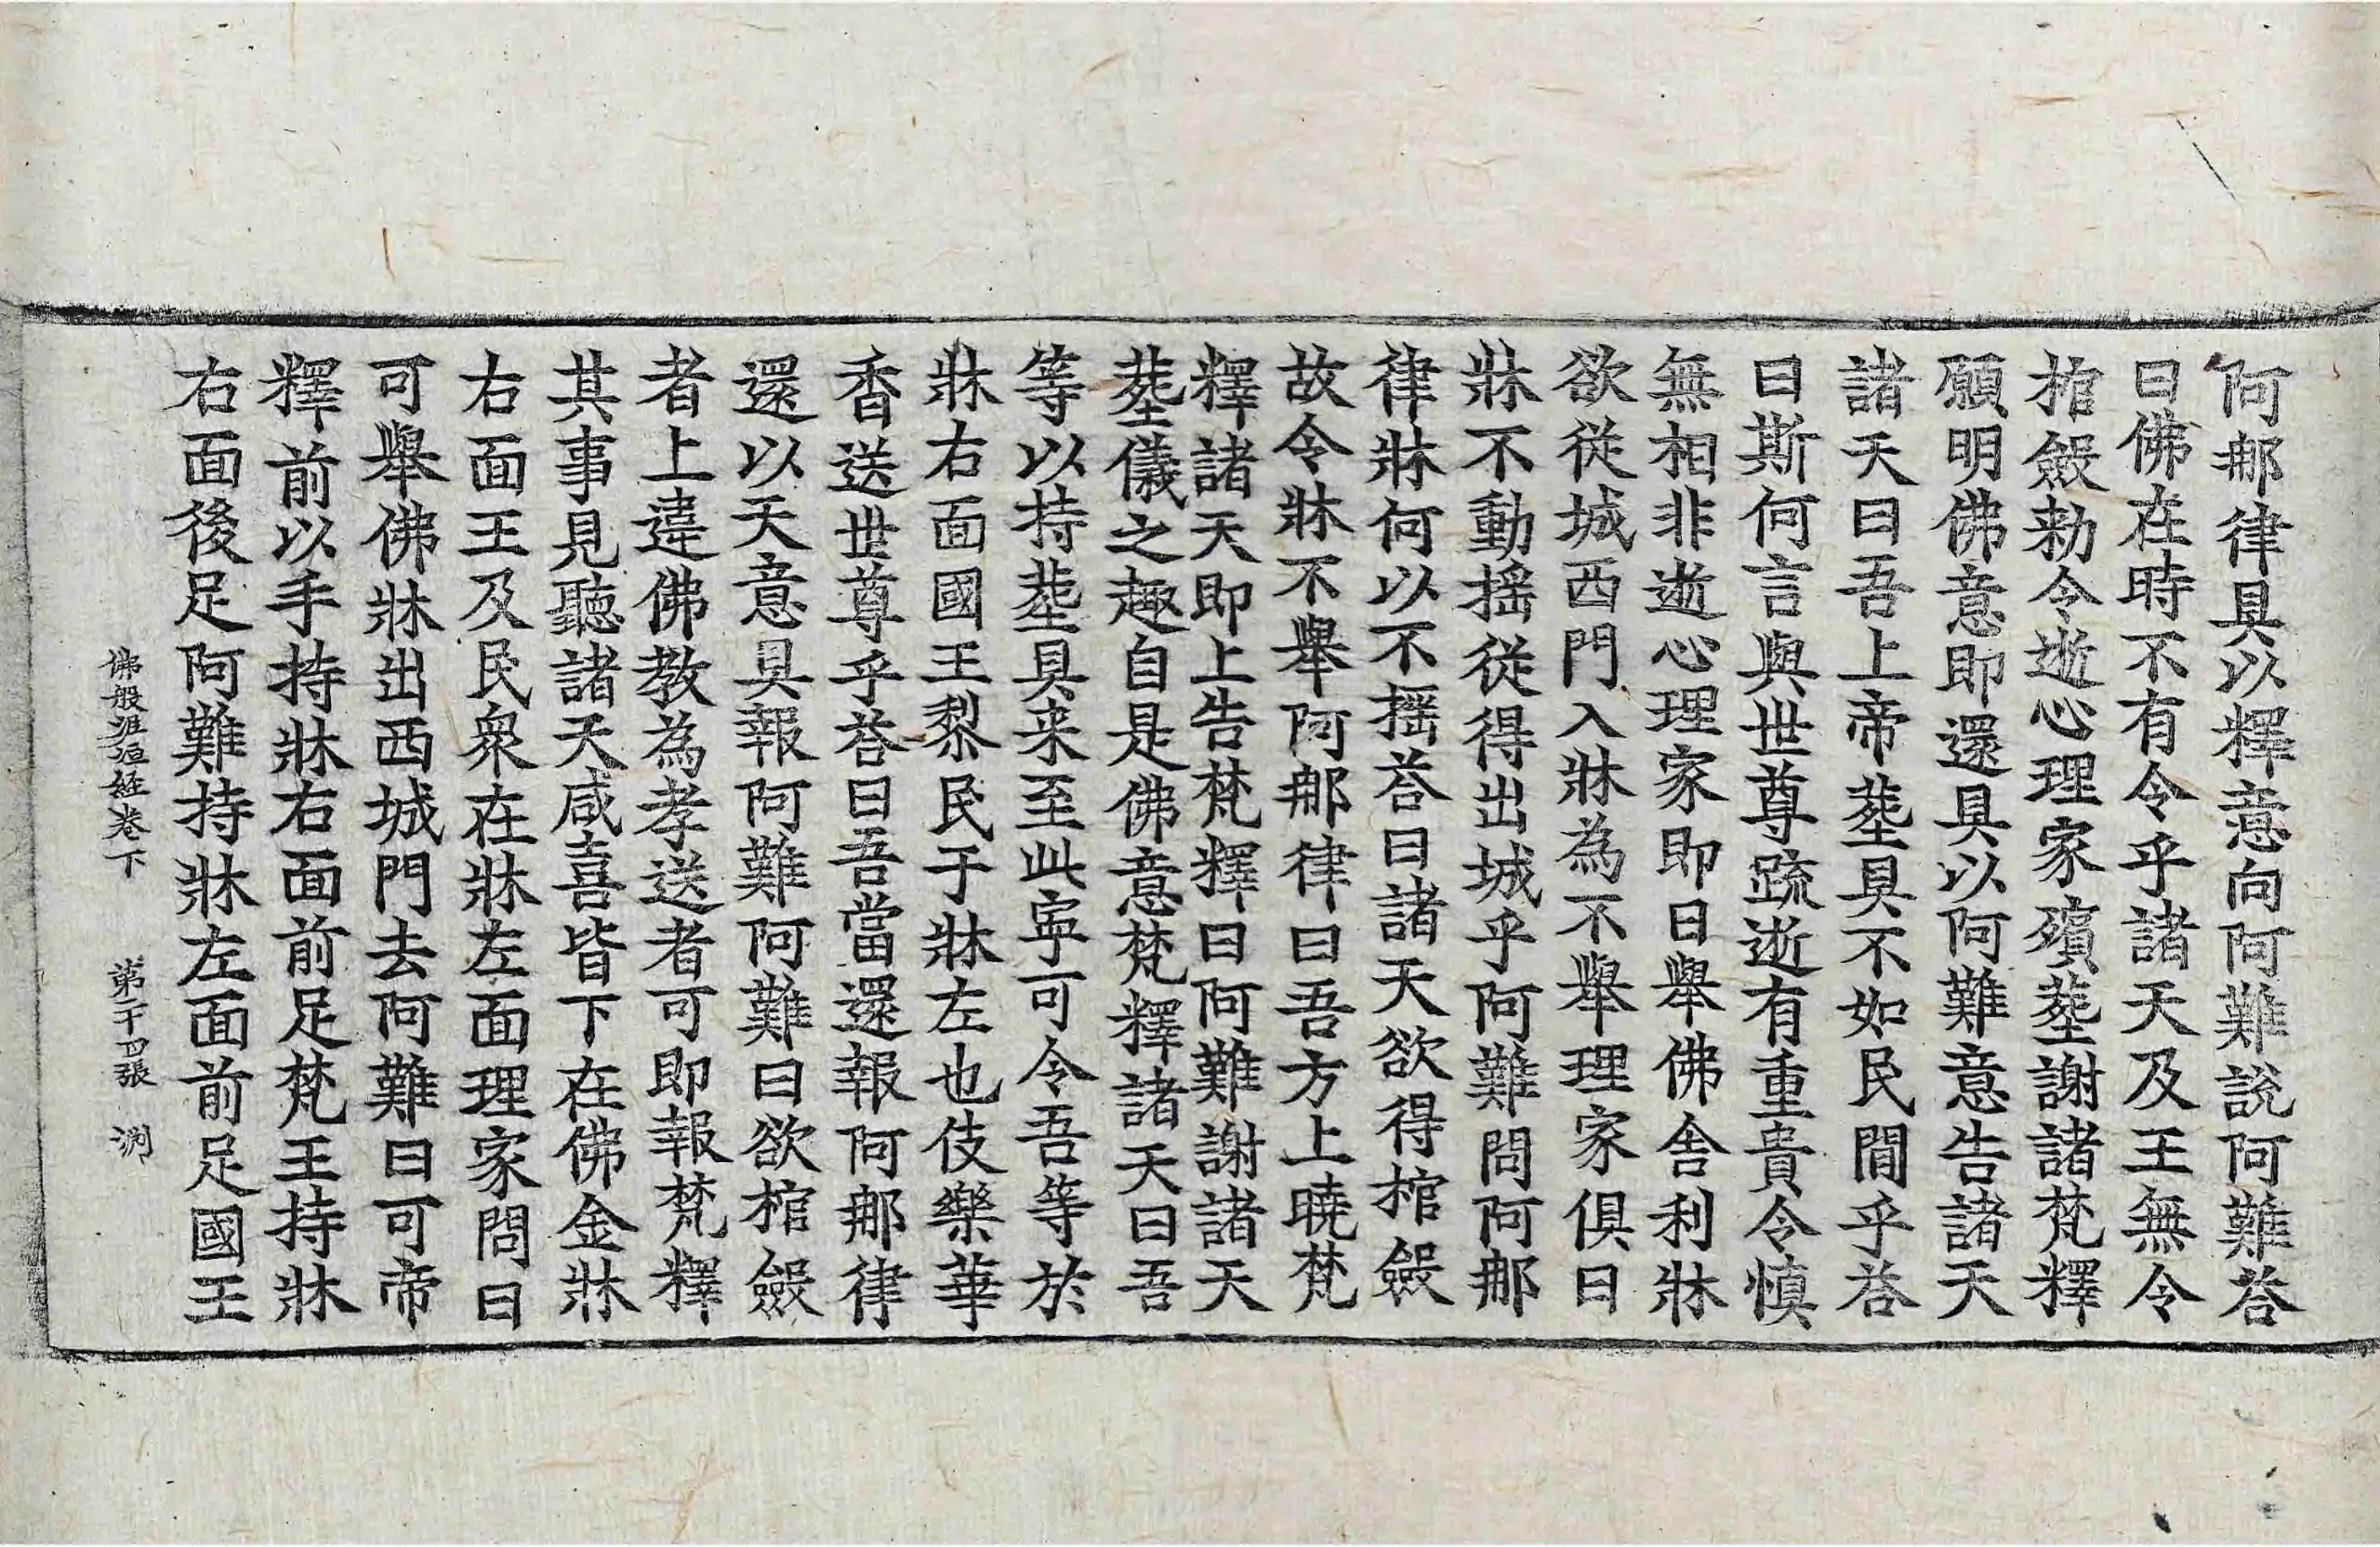 阿那律具以釋意向阿難說阿難荅
曰佛在時不有令乎諸天及王無令
棺斂勑令逝心理家殯葬謝諸梵釋
願明佛意即還具以阿難意告諸天
諸天曰吾上帝葬具不如民間乎荅
曰斯何言與世尊䟽逝有重貴令慎
無相非逝心理家即日舉佛舍利牀
欲從城西門入牀為不舉理家俱曰
牀不動摇從得出城乎阿難問阿那
律牀何以不摇荅曰諸天欲得棺斂
故令牀不舉阿那律曰吾方上曉梵
釋諸天即上告梵釋曰阿難謝諸天
葬儀之趣自是佛意梵釋諸天曰吾
等以持葬具来至此寧可令吾等於
牀右面國王黎民于牀左也伎樂華
香送世尊乎荅曰吾當還報阿那律
還以天意具報阿難阿難曰欲棺斂
者上違佛教為孝送者可即報梵釋
其事見聽諸天咸喜皆下在佛金牀
右面王及民衆在牀左面理家問曰
可舉佛牀出西城門去阿難曰可帝
釋前以手持牀右面前足梵王持牀
右面後足阿難持牀左面前足國王
佛般泥洹経卷下 第二十四張 渕